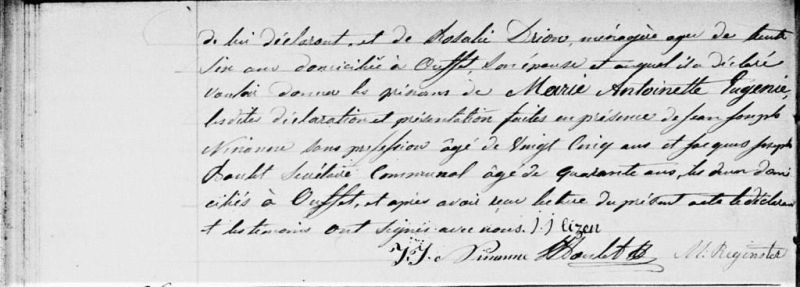 de lui déclarant, et de Rosalie Drion, ménagère agée de trente
six ans domiciliée à Ouffet, son épouse et auquel il a déclaré
vouloir donner les prénoms de Marie Antoinette Eugenie,
lesdites déclaration et présentation faites en présence de Jean Joseph
Ninanne sans profession âgé de Vingt Cinq ans et Jacques Joseph
Secrétaire Communal âgé de quarante ans, les deux domi
ciliés à Ouffet, et après avoir reçu lecture du présent acte le déclarant
et les témoins ont signés avec nous. J. J Lizen
J. J. Ninanne M. Reginster